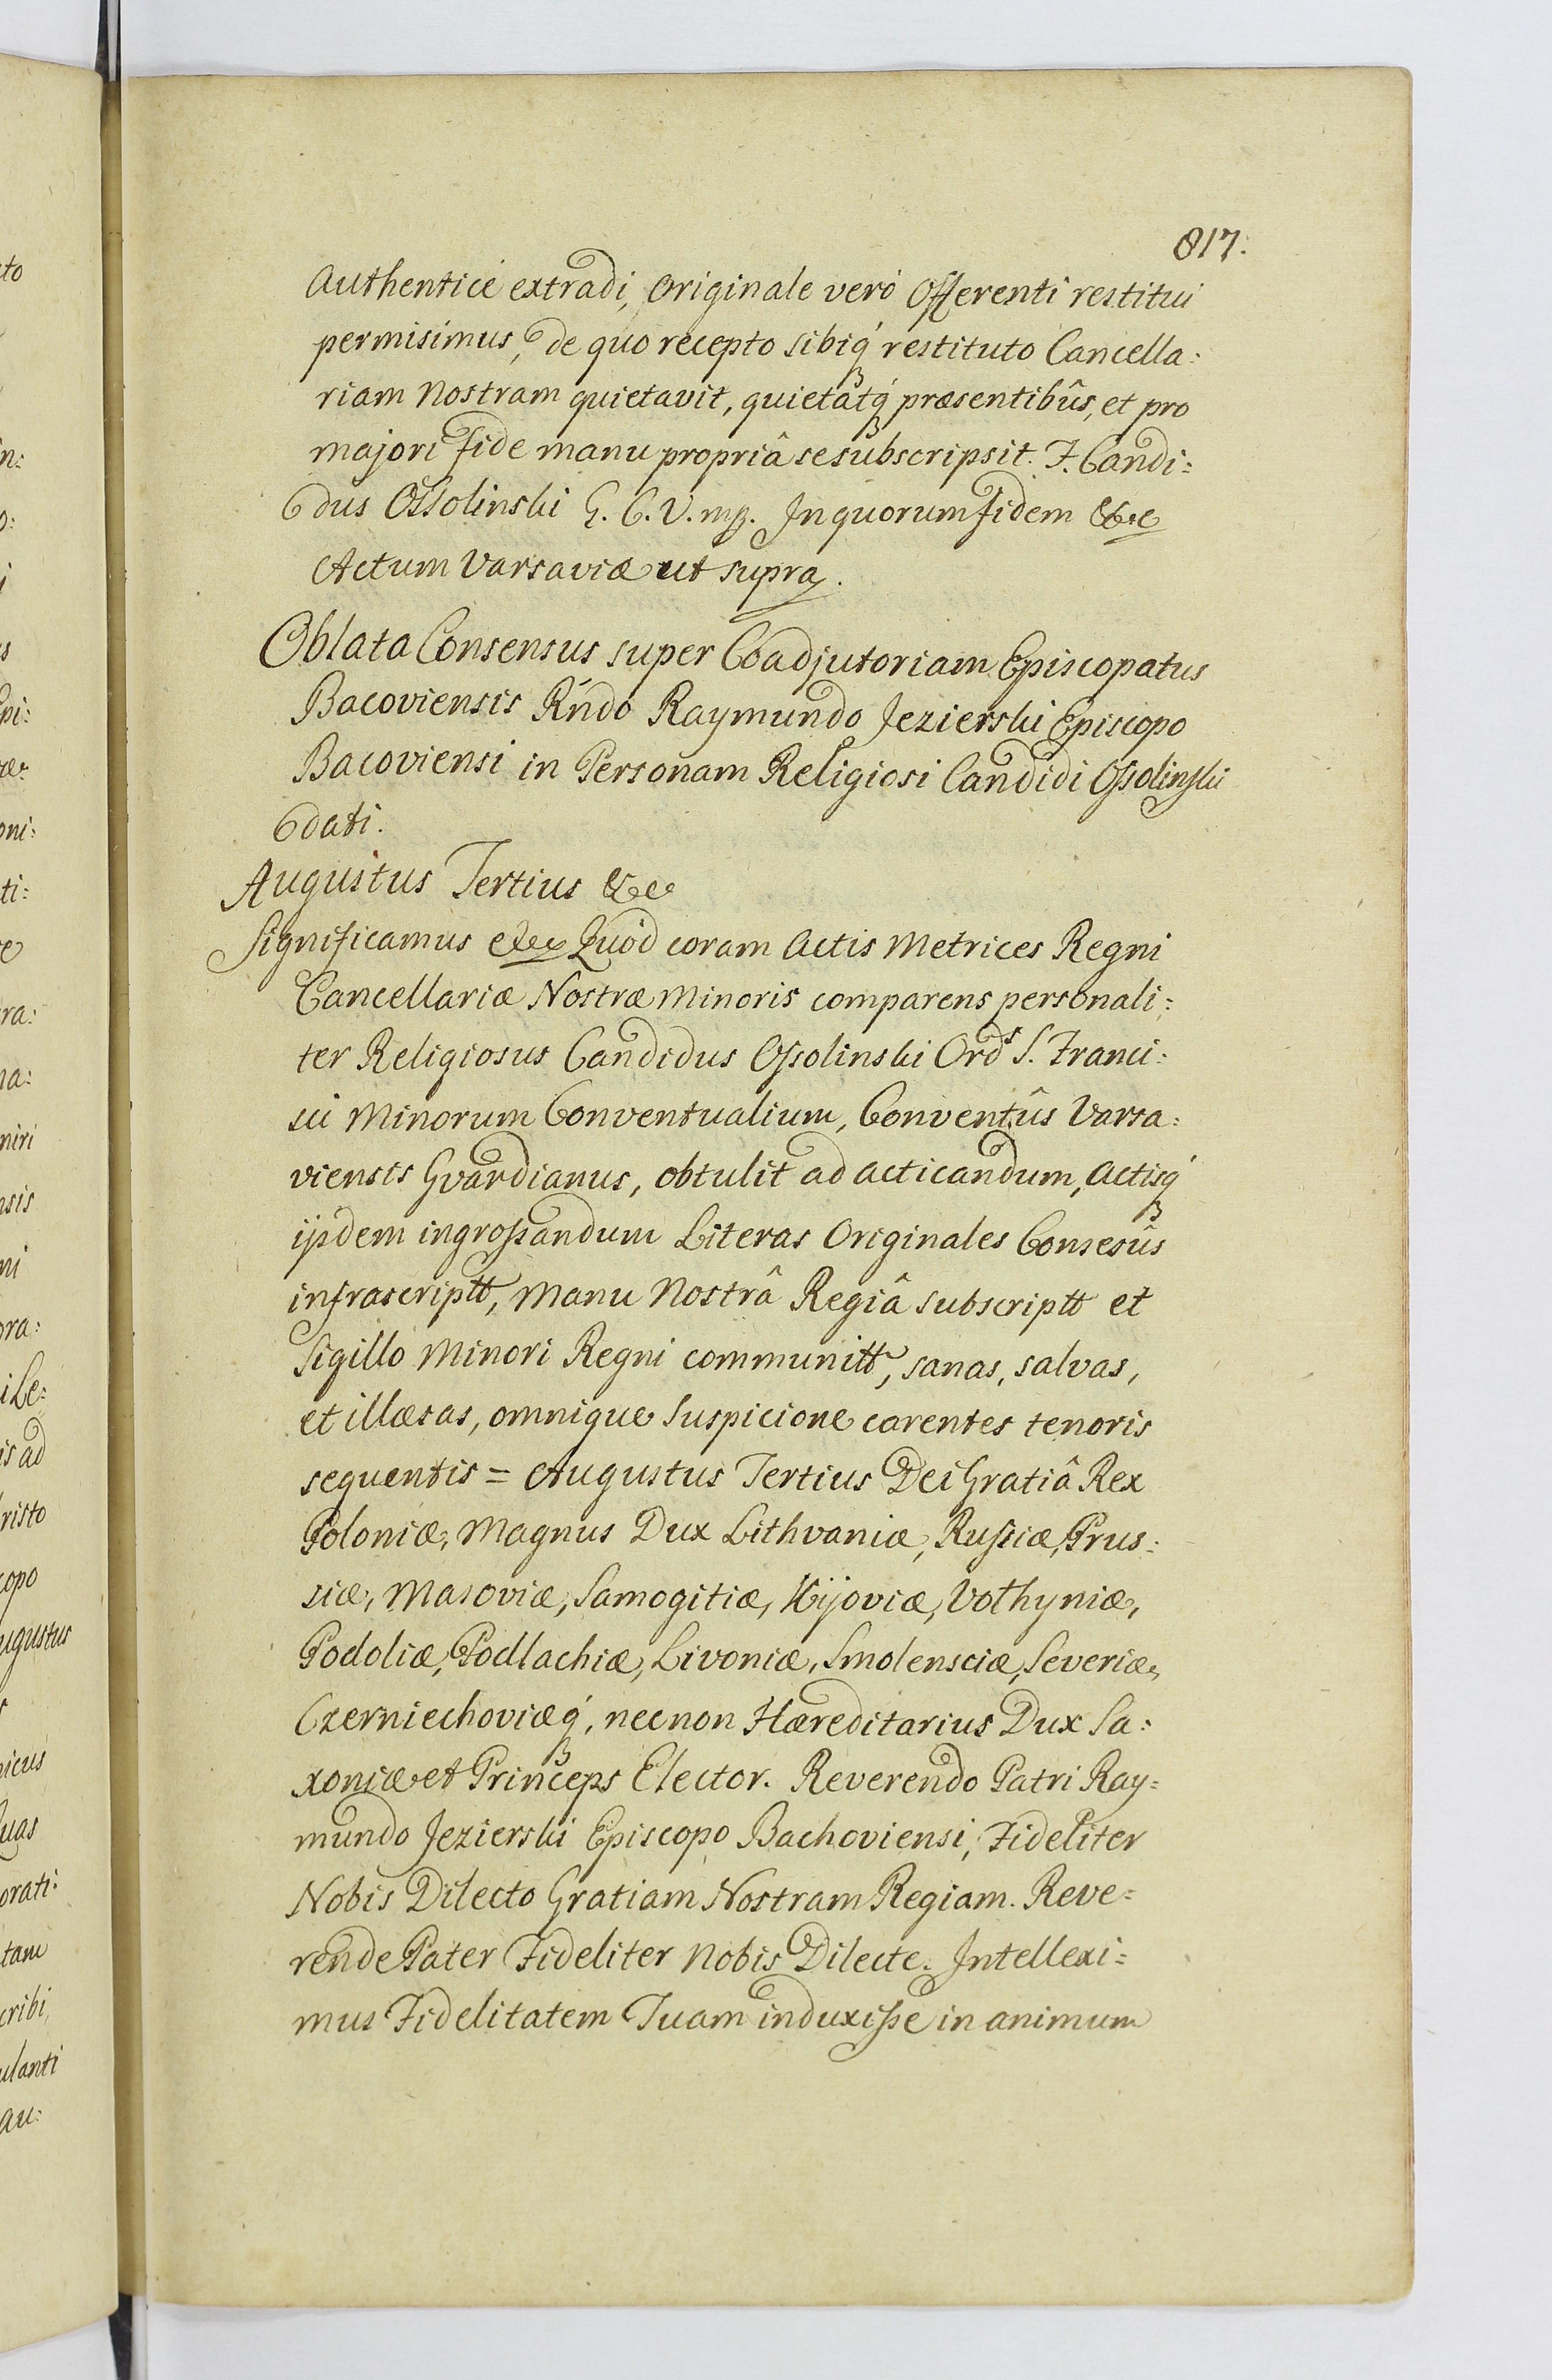 817.
Authenticè extradi, Originale verò Offerenti restitui
permisimus, de quo recepto sibiq́ restituto Cancella:
riam Nostram quietavit, quietatq́ præsentibûs, et pro
majori fide manu propriâ se subscripsit. F. Candi:
dus Ossolinski G. C. V. mp. In quorum fidem &c
Actum Varsaviæ ut supra.
Oblata Consensus super Coadjutoriam Episcopatus
Bacoviensis Rńdo Raymundo Jezierski Episcopo
Bacoviensi in Personam Religiosi Candidi Ossolinski
dati.
Augustus Tertius &c
Significamus &c Quod coram Actis Metrices Regni
Cancellariæ Nostræ Minoris comparens personali:
ter Religiosus Candidus Ossolinski Ords S. Franci:
sci Minorum Conventualium, Conventûs Varsa:
viensis Gvardianus, obtulit ad acticandum, Actisq́
ijsdem ingrossandum Literas Originales Consesûs
infrascriptt, Manu Nostrâ Regiâ subscriptt et
Sigillo Minori Regni communitt, sanas, salvas,
et illæsas, omnique Suspicione carentes tenoris
sequentis = Augustus Tertius Dei Gratiâ Rex
Poloniæ, Magnus Dux Lithvaniæ, Russiæ, Prus:
siæ, Masoviæ, Samogitiæ, Kijoviæ, Volhyniæ,
Podoliæ, Podlachiæ, Livoniæ, Smolensciæ, Severiæ,
Czerniechoviæq́, necnon Hæreditarius Dux Sa:
xoniæ et Princeps Elector. Reverendo Patri Ray:
mundo Jezierski Episcopo Bachoviensi, Fideliter
Nobis Dilecto Gratiam Nostram Regiam. Reve:
rende Pater Fideliter Nobis Dilecte. Intellexi:
mus Fidelitatem Tuam induxisse in animum